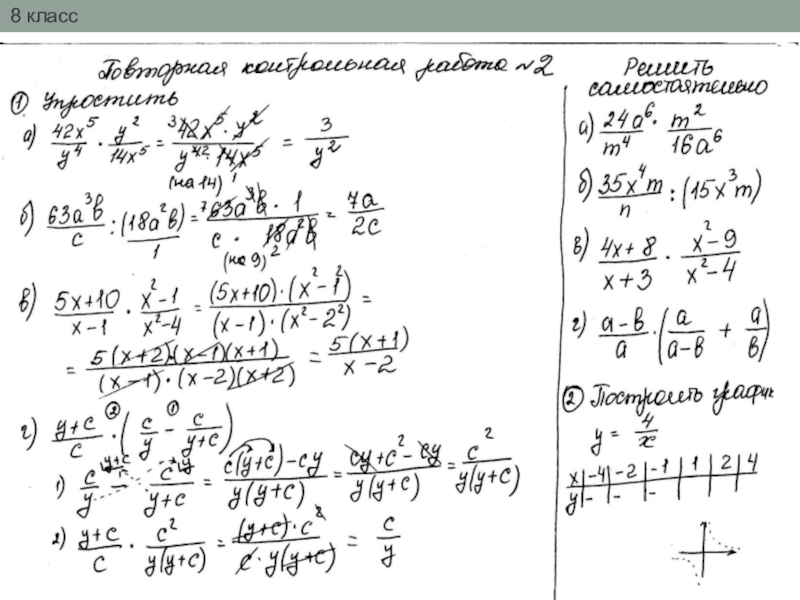 8 класс
Повторная контрольная работа №2
① Упростить
а) 42x⁵/y⁴ · y²/14x⁵ = ³42x⁵ · y²/y⁴² · 14x⁵ ¹ = 3/y²
(на 14)
б) 63a³b/c : (18a²b)/1 = ⁷63a³b · 1/c · 18a²b ² = 7a/2c
(на 9)
в) 5x+10/x-1 · x²-1/x²-4 = (5x+10)·(x²-1²)/(x-1)·(x²-2²) =
= 5(x+2)(x-1)(x+1)/(x-1)·(x-2)(x+2) = 5(x+1)/x-2
г) y+c/c ·② (c/y -① c/y+c)
1) c/y ʸ⁺ᶜ - c/y+c ʸ = c(y+c)-cy/y(y+c) = cy+c²-cy/y(y+c) = c²/y(y+c)
2) y+c/c · c²/y(y+c) = (y+c)·c²/c·y(y+c) = c/y
Решить
самостоятельно
а) 24a⁶/m⁴ · m²/16a⁶
б) 35x⁴m/n : (15x³m)
в) 4x+8/x+3 · x²-9/x²-4
г) a-b/a · (a/a-b + a/b)
② Построить график
y = 4/x
x | -4 | -2 | -1 | 1 | 2 | 4
y | - | - | -